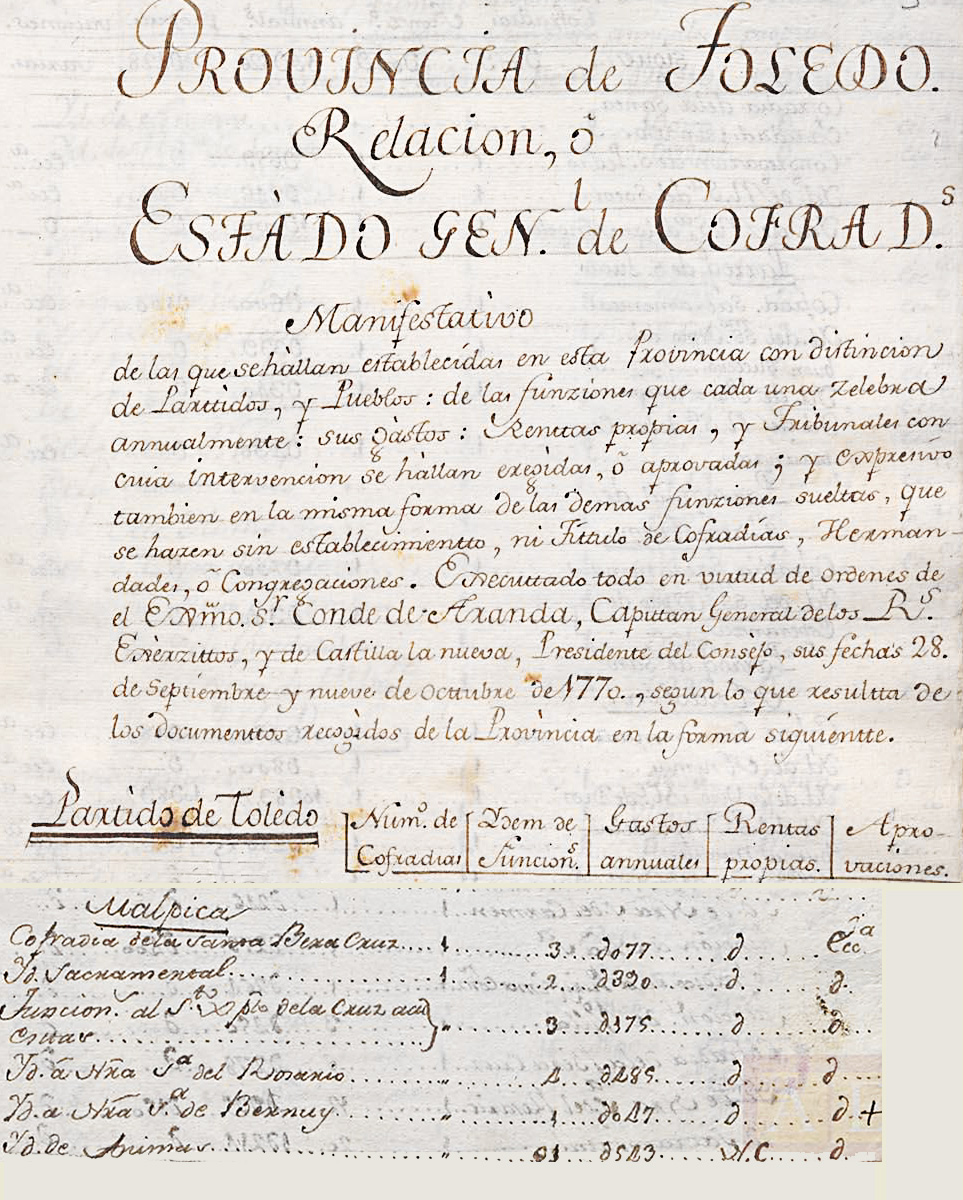 PROVINCIA de TOLEDO.
Relacion, ô
ESTÀDO GEN.l de COFRAD.s
Manifestativo
de las que se hàllan establecídas en esta Provincia con distincion
de Parttidos, y Pueblos: de las funziones que cada una zelebra
annualmente: sus gàstos: Renttas propias, y Tribunales con
cuia intervencion se hàllan eregidas, ô aprovadas; y expresivo
tambien en la misma forma de las demàs funziones sueltas, que
se hazen sin establecimientto, ni Títtulo de Cofradías, Herman-
dades, ô Congregaciones. Executtado todo en virtud de ordenes de
el Exmo. S.r Conde de Aranda, Capittan General de los R.s
Exèrzittos, y de Castilla la nueva, Presidente del Consejo, sus fechas 28.
de Septiembre y nueve de Octtubre de 1770., segun lo que resultta de
los documenttos recogìdos de la Provìncia en la forma siguientte.
Partido de Tolèdo
Num.o de Cofradias
Idem de Funcion.s
Gastos annuales
Rentas propias.
Apro-vaciones.
Malpica
Cofradia dela santa Bera Cruz.... 1 ... 3.. do77 .... d ..... Ecc.ca
Yd. Sacramental.... 1 ... 2.. d390 .... d ..... d.
Funcion. al S.to Xpto dela Cruz acà
citas.... " ... 3.. d175 .... d ..... d
Yd. â Nrâ S.a del Rosario .... " ... 4.. d485 .... d ..... d
Yd. a Nrâ S.a de Bernuy .... " ... 1.. do47 .... d ..... d. +
Yd. de Animas .... " ... 01 d543 .... N.C ..... d.